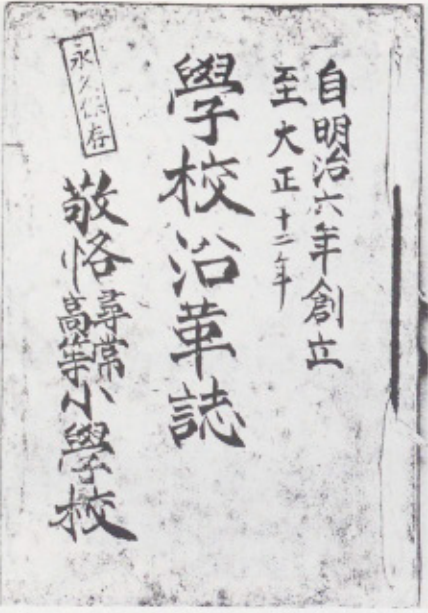 自明治六年創立
至大正十二年
學校沿革誌
永久保存
敬恪尋常高等小學校